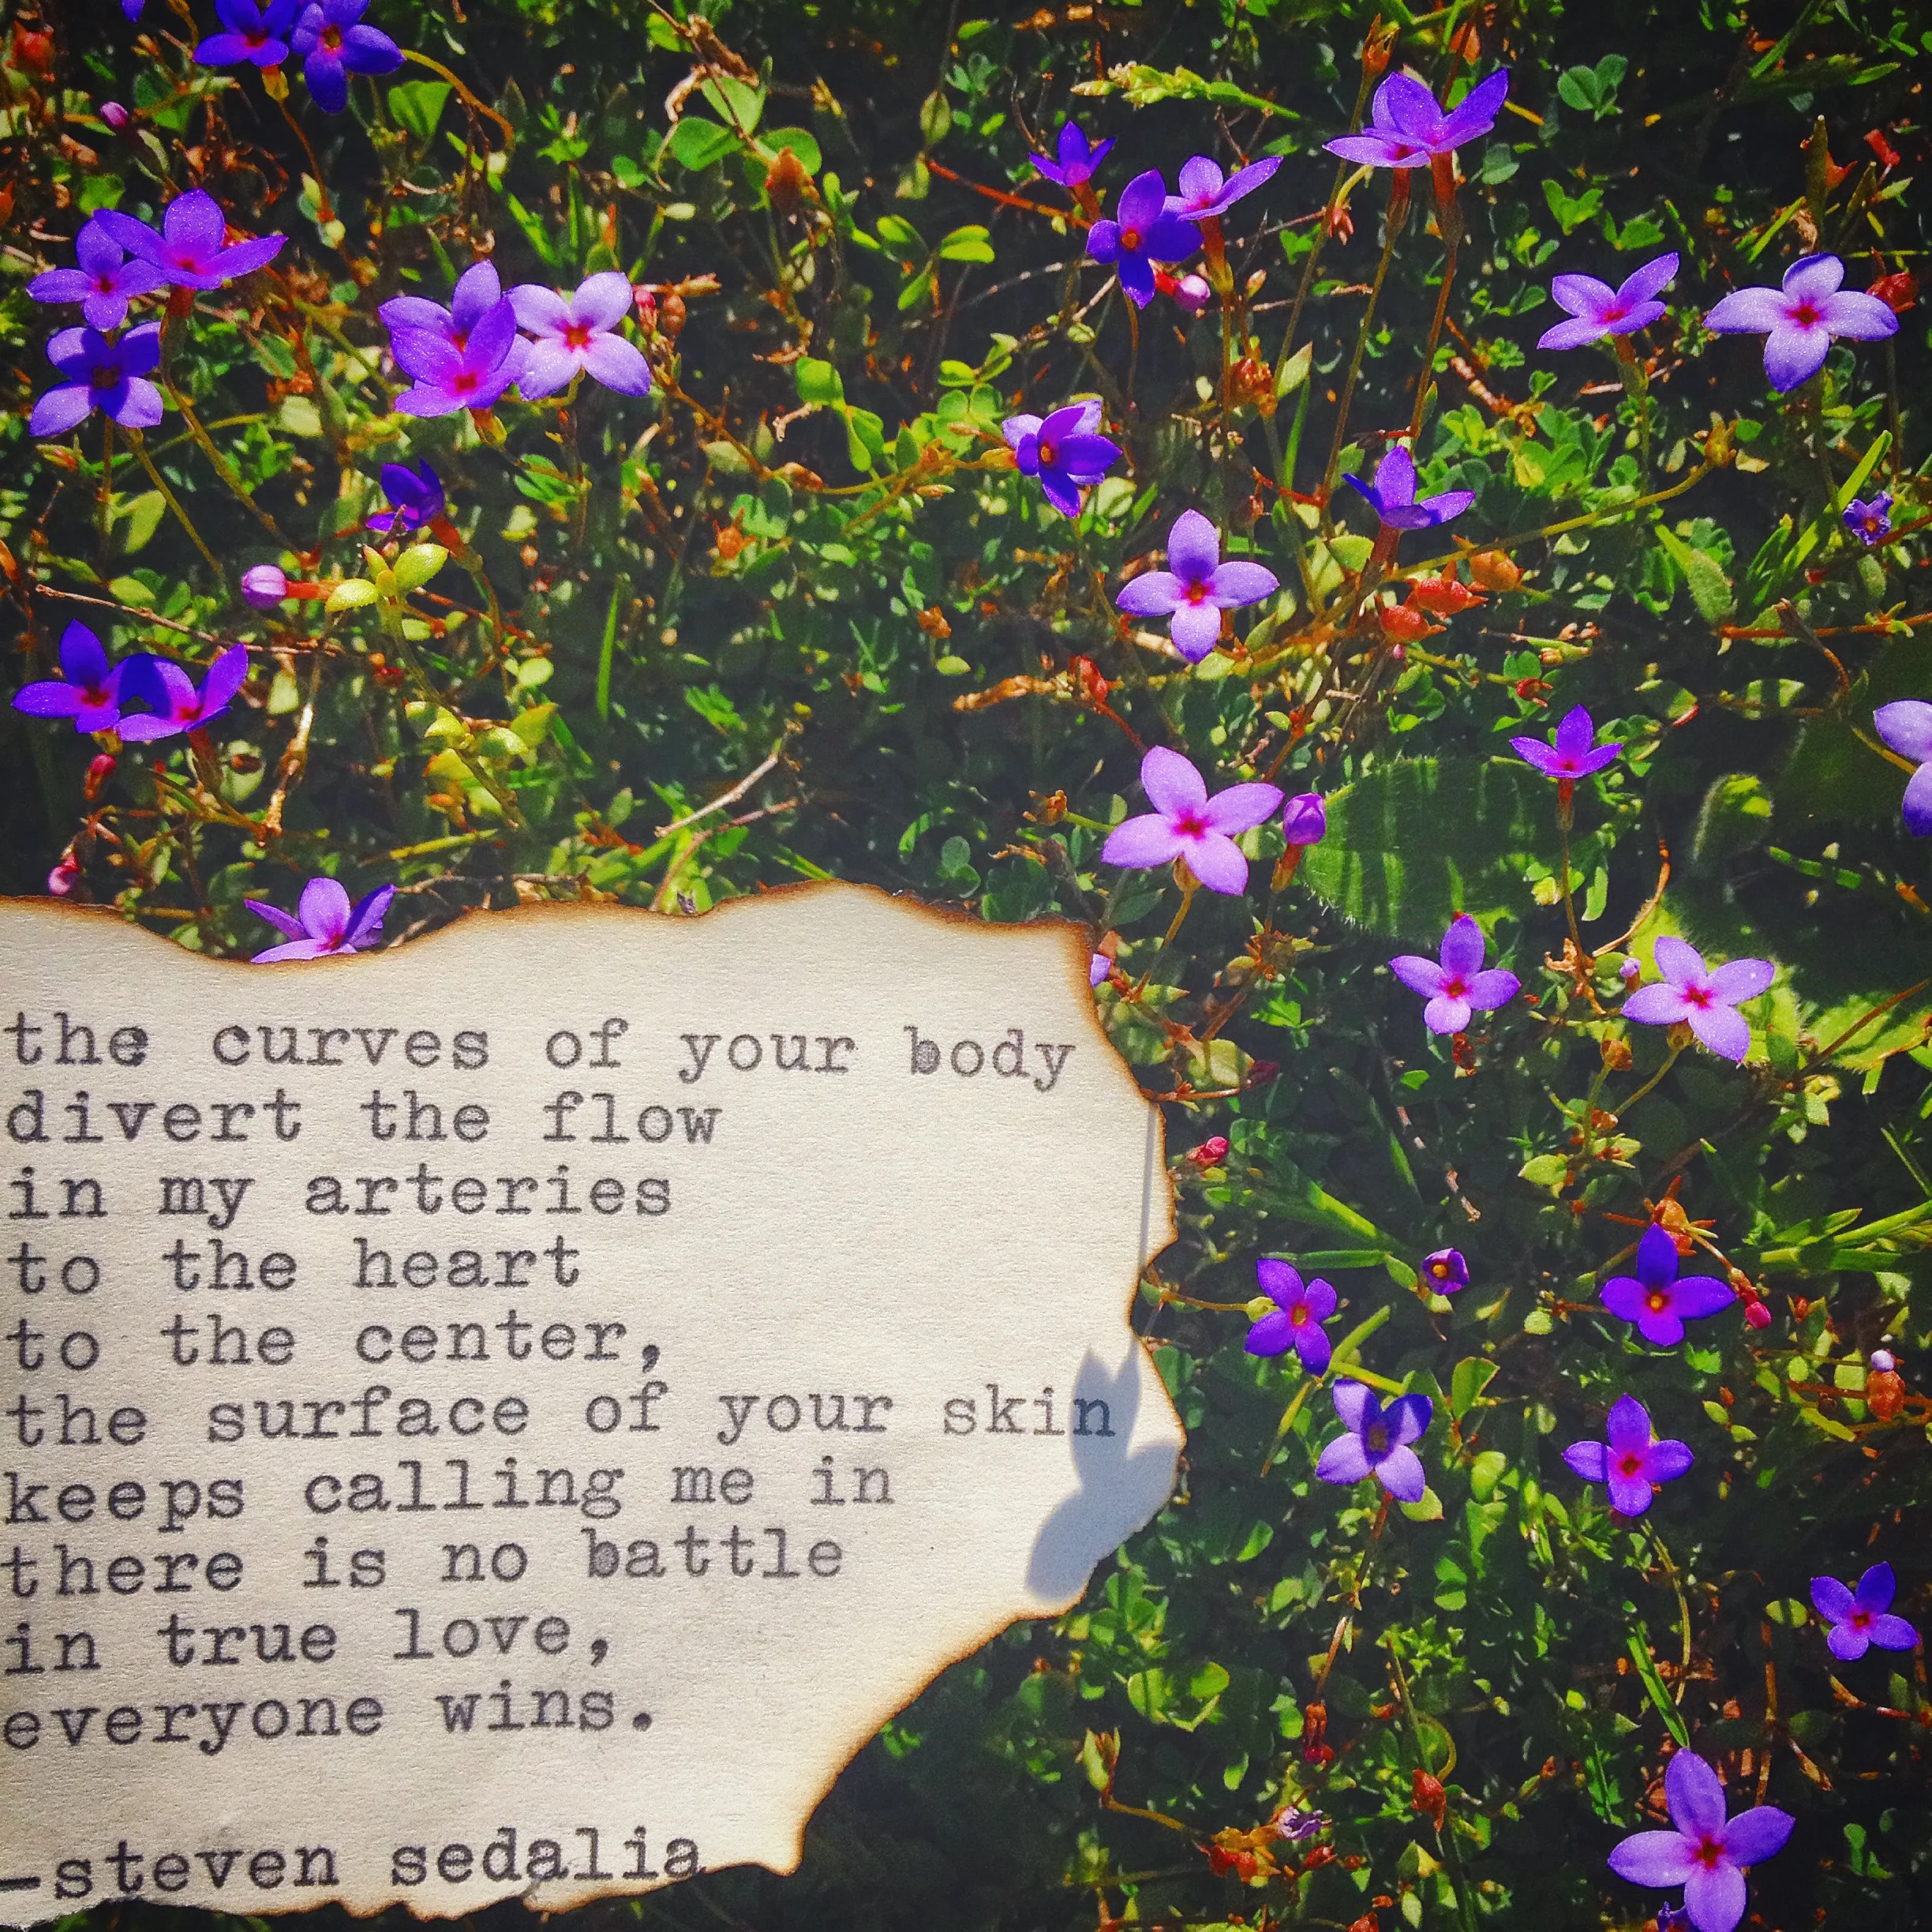 the curves of your body
divert the flow
in my arteries
to the heart
to the center,
the surface of your skin
keeps calling me in
there is no battle
in true love,
everyone wins.
-steven sedalia